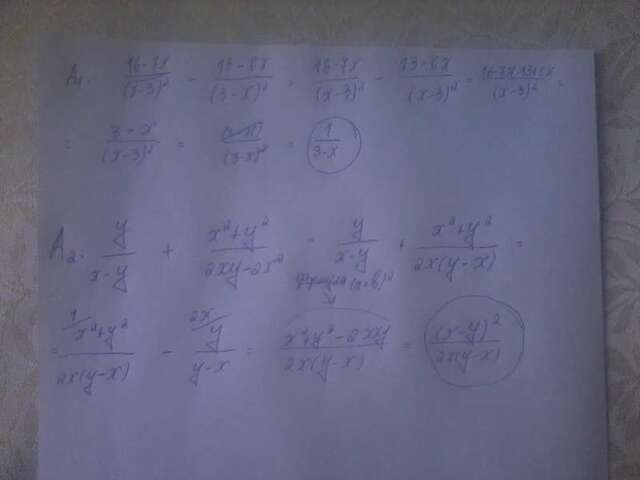 A1. (16-7x)/(x-3)² - (13-6x)/(3-x)² = (16-7x)/(x-3)² - (13-6x)/(x-3)² = (16-7x-13+6x)/(x-3)² =
= (3-x)/(x-3)² = (3-x)/(3-x)² = 1/(3-x)
A2. y/(x-y) + (x²+y²)/(2xy-2x²) = y/(x-y) + (x²+y²)/(2x(y-x)) =
формула (a-b)²
= (x²+y²)/(2x(y-x)) - y/(y-x) = (x²+y²-2xy)/(2x(y-x)) = (x-y)²/(2x(y-x))